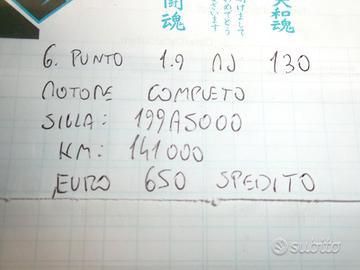 闘魂
大和魂
6. PUNTO 1.9 MJ 130
MOTORE COMPLETO
SIGLA: 199A5000
KM: 141000
EURO 650 SPEDITO
subito